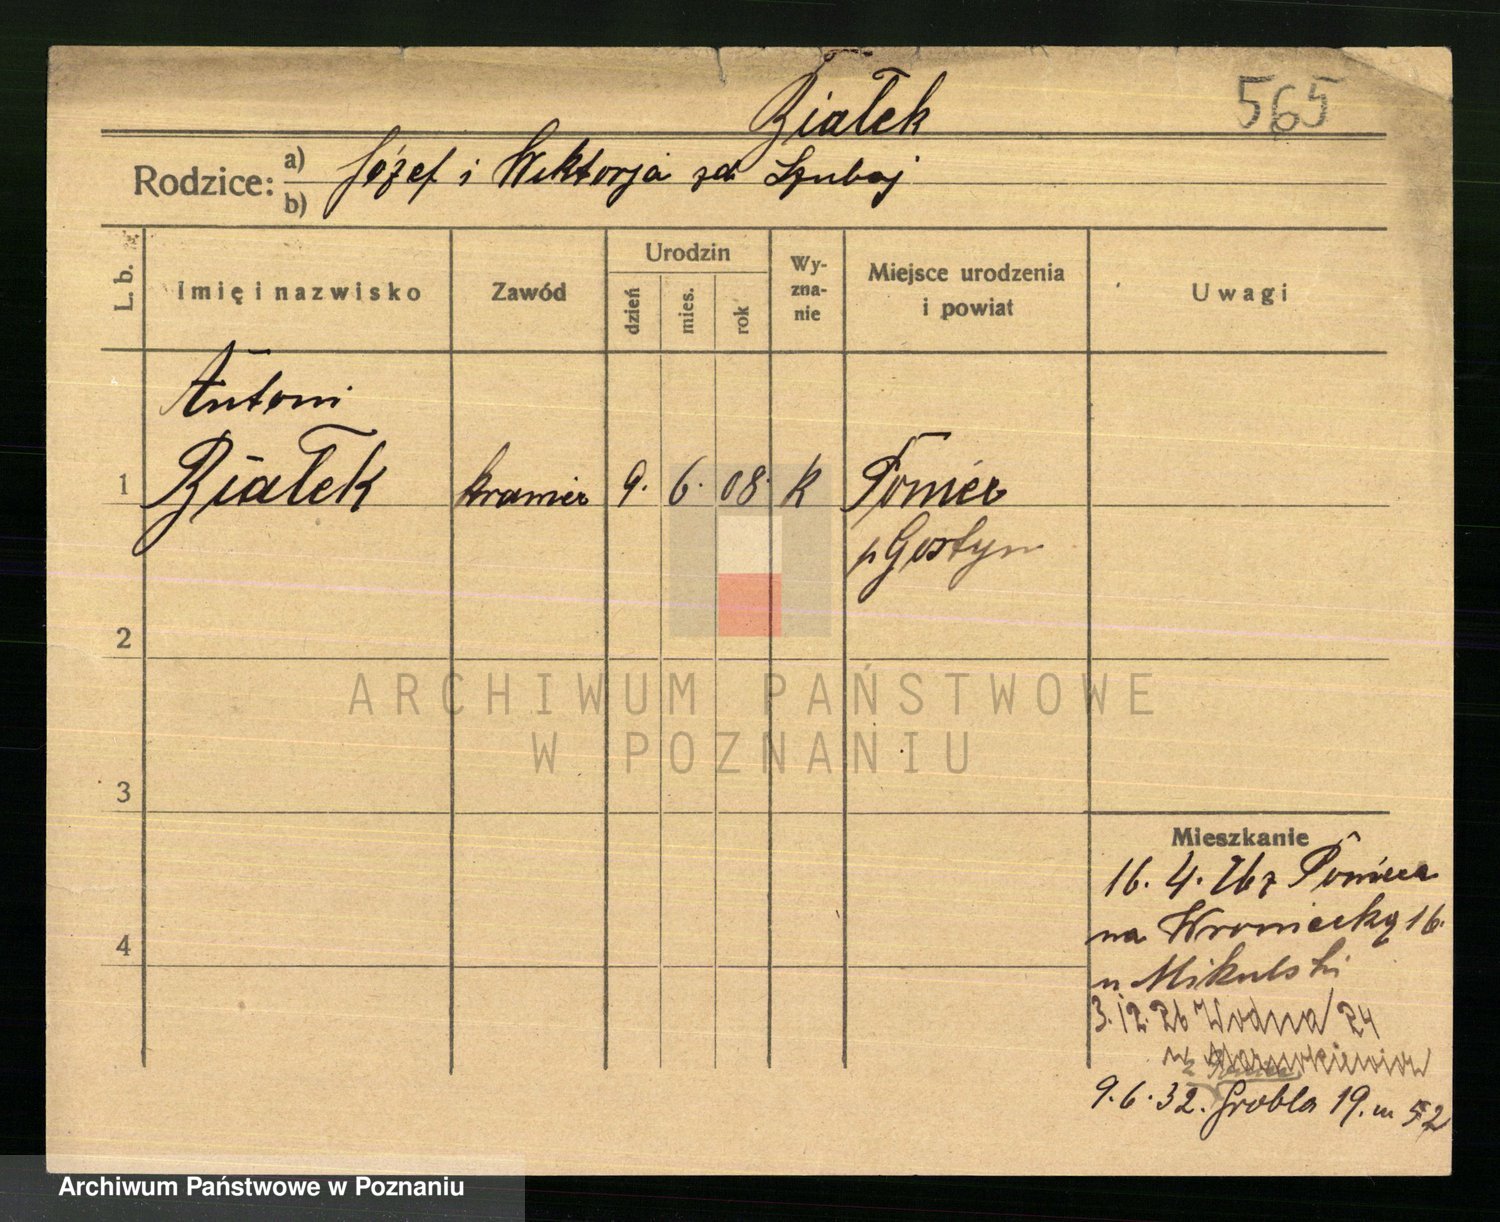 Białek
565
Rodzice: a) Józef i Wiktorja zd Szubaj
b)
L. b.
Imię i nazwisko
Zawód
Urodzin
dzień
mies.
rok
Wy-
zna-
nie
Miejsce urodzenia
i powiat
Uwagi
Antoni
1 Białek kramier 9. 6. 08. k Poniec
p Gostyn
2
ARCHIWUM PAŃSTWOWE
W POZNANIU
3
Mieszkanie
16. 4. 26 z Ponieca
4
na Wroniecką 16.
u Mikulski
3. 12. 26 Wodna 24
9. 6. 32. Grobla 19. m 52
Archiwum Państwowe w Poznaniu